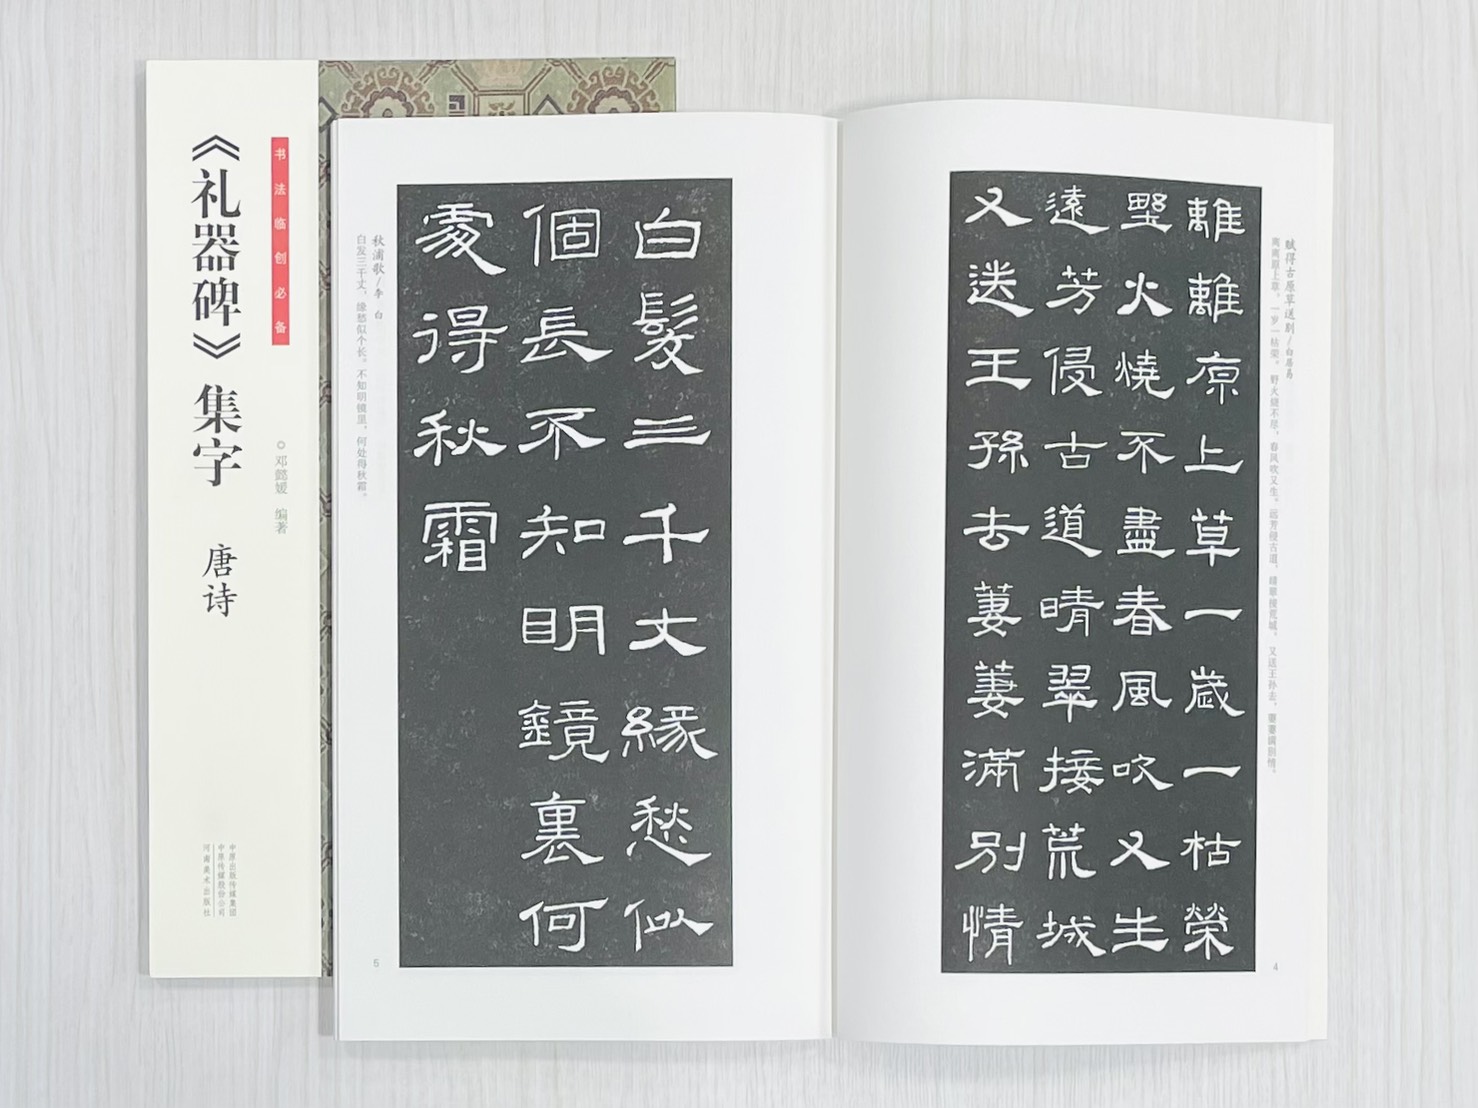 书法临创必备
《礼器碑》集字 唐诗
○邓懿媛 编著
中原出版传媒集团
中原传媒股份公司
河南美术出版社
赋得古原草送别/白居易
离离原上草，一岁一枯荣。野火烧不尽，春风吹又生。远芳侵古道，晴翠接荒城。又送王孙去，萋萋满别情。
離離原上草一歲一枯榮
野火燒不盡春風吹又生
遠芳侵古道晴翠接荒城
又送王孫去萋萋滿別情
4
白髮三千丈緣愁似
個長不知明鏡裏何
處得秋霜
秋浦歌/李 白
白发三千丈，缘愁似个长。不知明镜里，何处得秋霜。
5